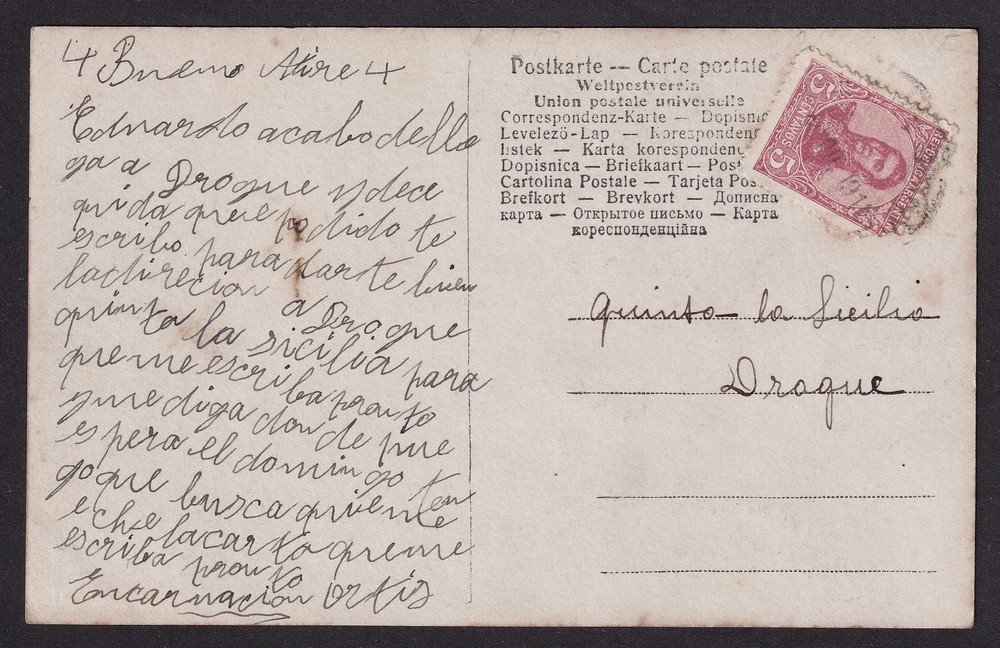 4 Bueno Aire 4
Eduardo acabo de lle
ga a Drogue y dece
qui da que e podido te
escribo para darte bien
la direcion a Drogue
quinta la sicilia para
que me escriba pronto
y me diga don de pue
espera el domingo
que busca quien ten
eche la carta que me
escriba pronto
Encarnacion Ortis
Postkarte — Carte postale
Weltpostverein
Union postale universelle
Correspondenz-Karte — Dopisnic
Levelező-Lap — Korespondenc
listek — Karta korespondenc
Dopisnica — Briefkaart — Post
Cartolina Postale — Tarjeta Pos
Brefkort — Brevkort — Дописна
карта — Открытое письмо — Карта
кореспонденційна
REPUBLICA ARGENTINA
5 CENTAVOS 5
quinta la Sicilia
Drogue